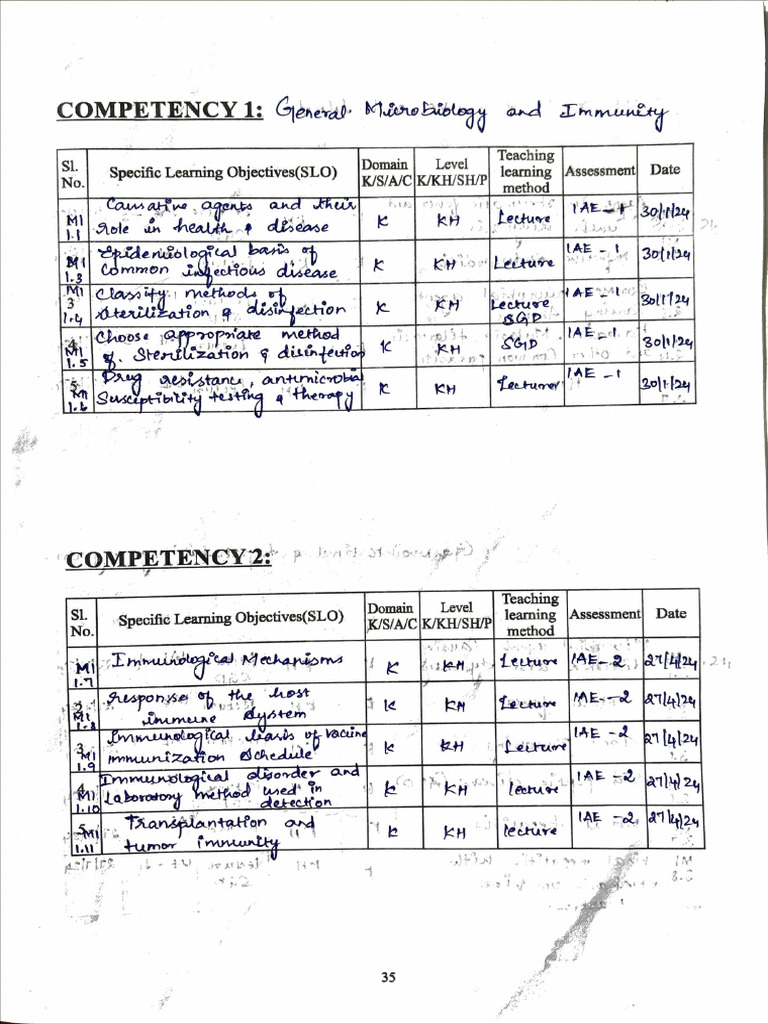 COMPETENCY 1: General Microbiology and Immunity
Sl. No. Specific Learning Objectives(SLO) Domain K/S/A/C Level K/KH/SH/P Teaching learning method Assessment Date
MI 1.1 Causative agents and their role in health & disease K KH Lecture IAE - 1 30/1/24
MI 1.3 Epidemiological basis of common infectious disease K KH Lecture IAE - 1 30/1/24
3 MI 1.4 Classify methods of Sterilization & disinfection K KH Lecture, SGD IAE - 1 30/1/24
4 MI 1.5 Choose appropriate method of Sterilization & disinfection K KH SGD IAE - 1 30/1/24
5 MI 1.6 Drug resistance, antimicrobial Susceptibility testing & therapy K KH Lecture IAE - 1 30/1/24
COMPETENCY 2:
Sl. No. Specific Learning Objectives(SLO) Domain K/S/A/C Level K/KH/SH/P Teaching learning method Assessment Date
MI 1.7 Immunological Mechanisms K KH Lecture IAE - 2 27/4/24
2 MI 1.8 Response of the host immune system K KH Lecture IAE - 2 27/4/24
3 MI 1.9 Immunological basis of vaccine immunization Schedule K KH Lecture IAE - 2 27/4/24
4 MI 1.10 Immunological disorder and Laboratory method used in detection K KH lecture IAE - 2 27/4/24
5 MI 1.11 Transplantation and tumor immunity K KH lecture IAE - 2 27/4/24
35